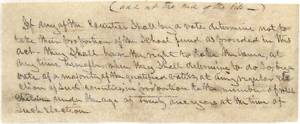 (and at the end of the bill —)
If any of the Counties Shall by a vote determine not to
take their proportion of the School fund as provided in this
act – they Shall have the right to take the same, at
any time thereafter, when they Shall determine to do so, by a
vote of a majority of the qualified voters at any regular el-
ection of such counties, in proportion to the number of white
children under the age of twenty one years at the time of
such election